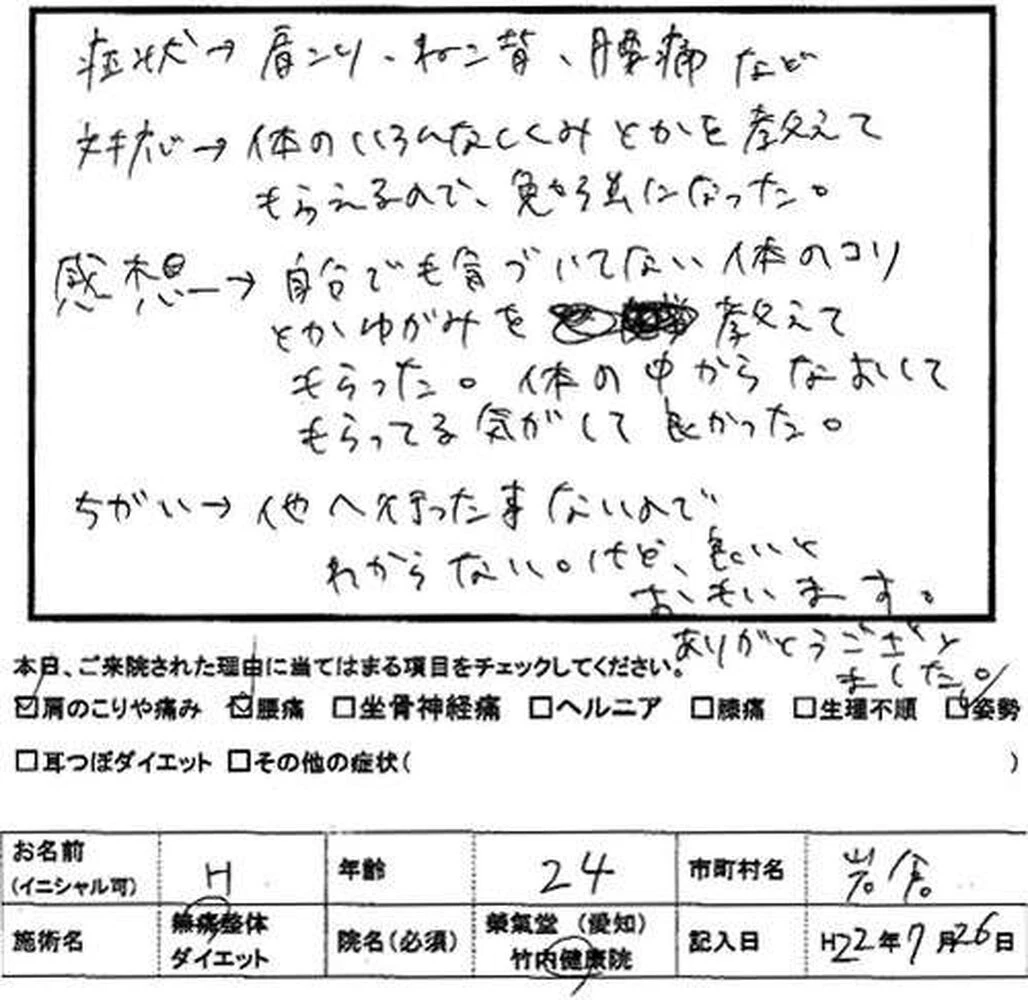 症状→肩こり、ねこ背、腰痛など
対応→体のいろんなしくみとかを教えて
もらえるので、勉強になった。
感想→自分でも気づいてない体のコリ
とかゆがみを教えて
もらった。体の中からなおして
もらってる気がして良かった。
ちがい→他へ行った事ないので
わからない。けど、良いと
おもいます。
ありがとうござい
ました。
本日、ご来院された理由に当てはまる項目をチェックしてください。
☑肩のこりや痛み ☑腰痛 □坐骨神経痛 □ヘルニア □膝痛 □生理不順 ☑姿勢
□耳つぼダイエット □その他の症状( )
お名前(イニシャル可) H 年齢 24 市町村名 岩倉
施術名 無痛整体 ダイエット 院名(必須) 榮氣堂(愛知) 竹内健康院 記入日 H22年7月26日